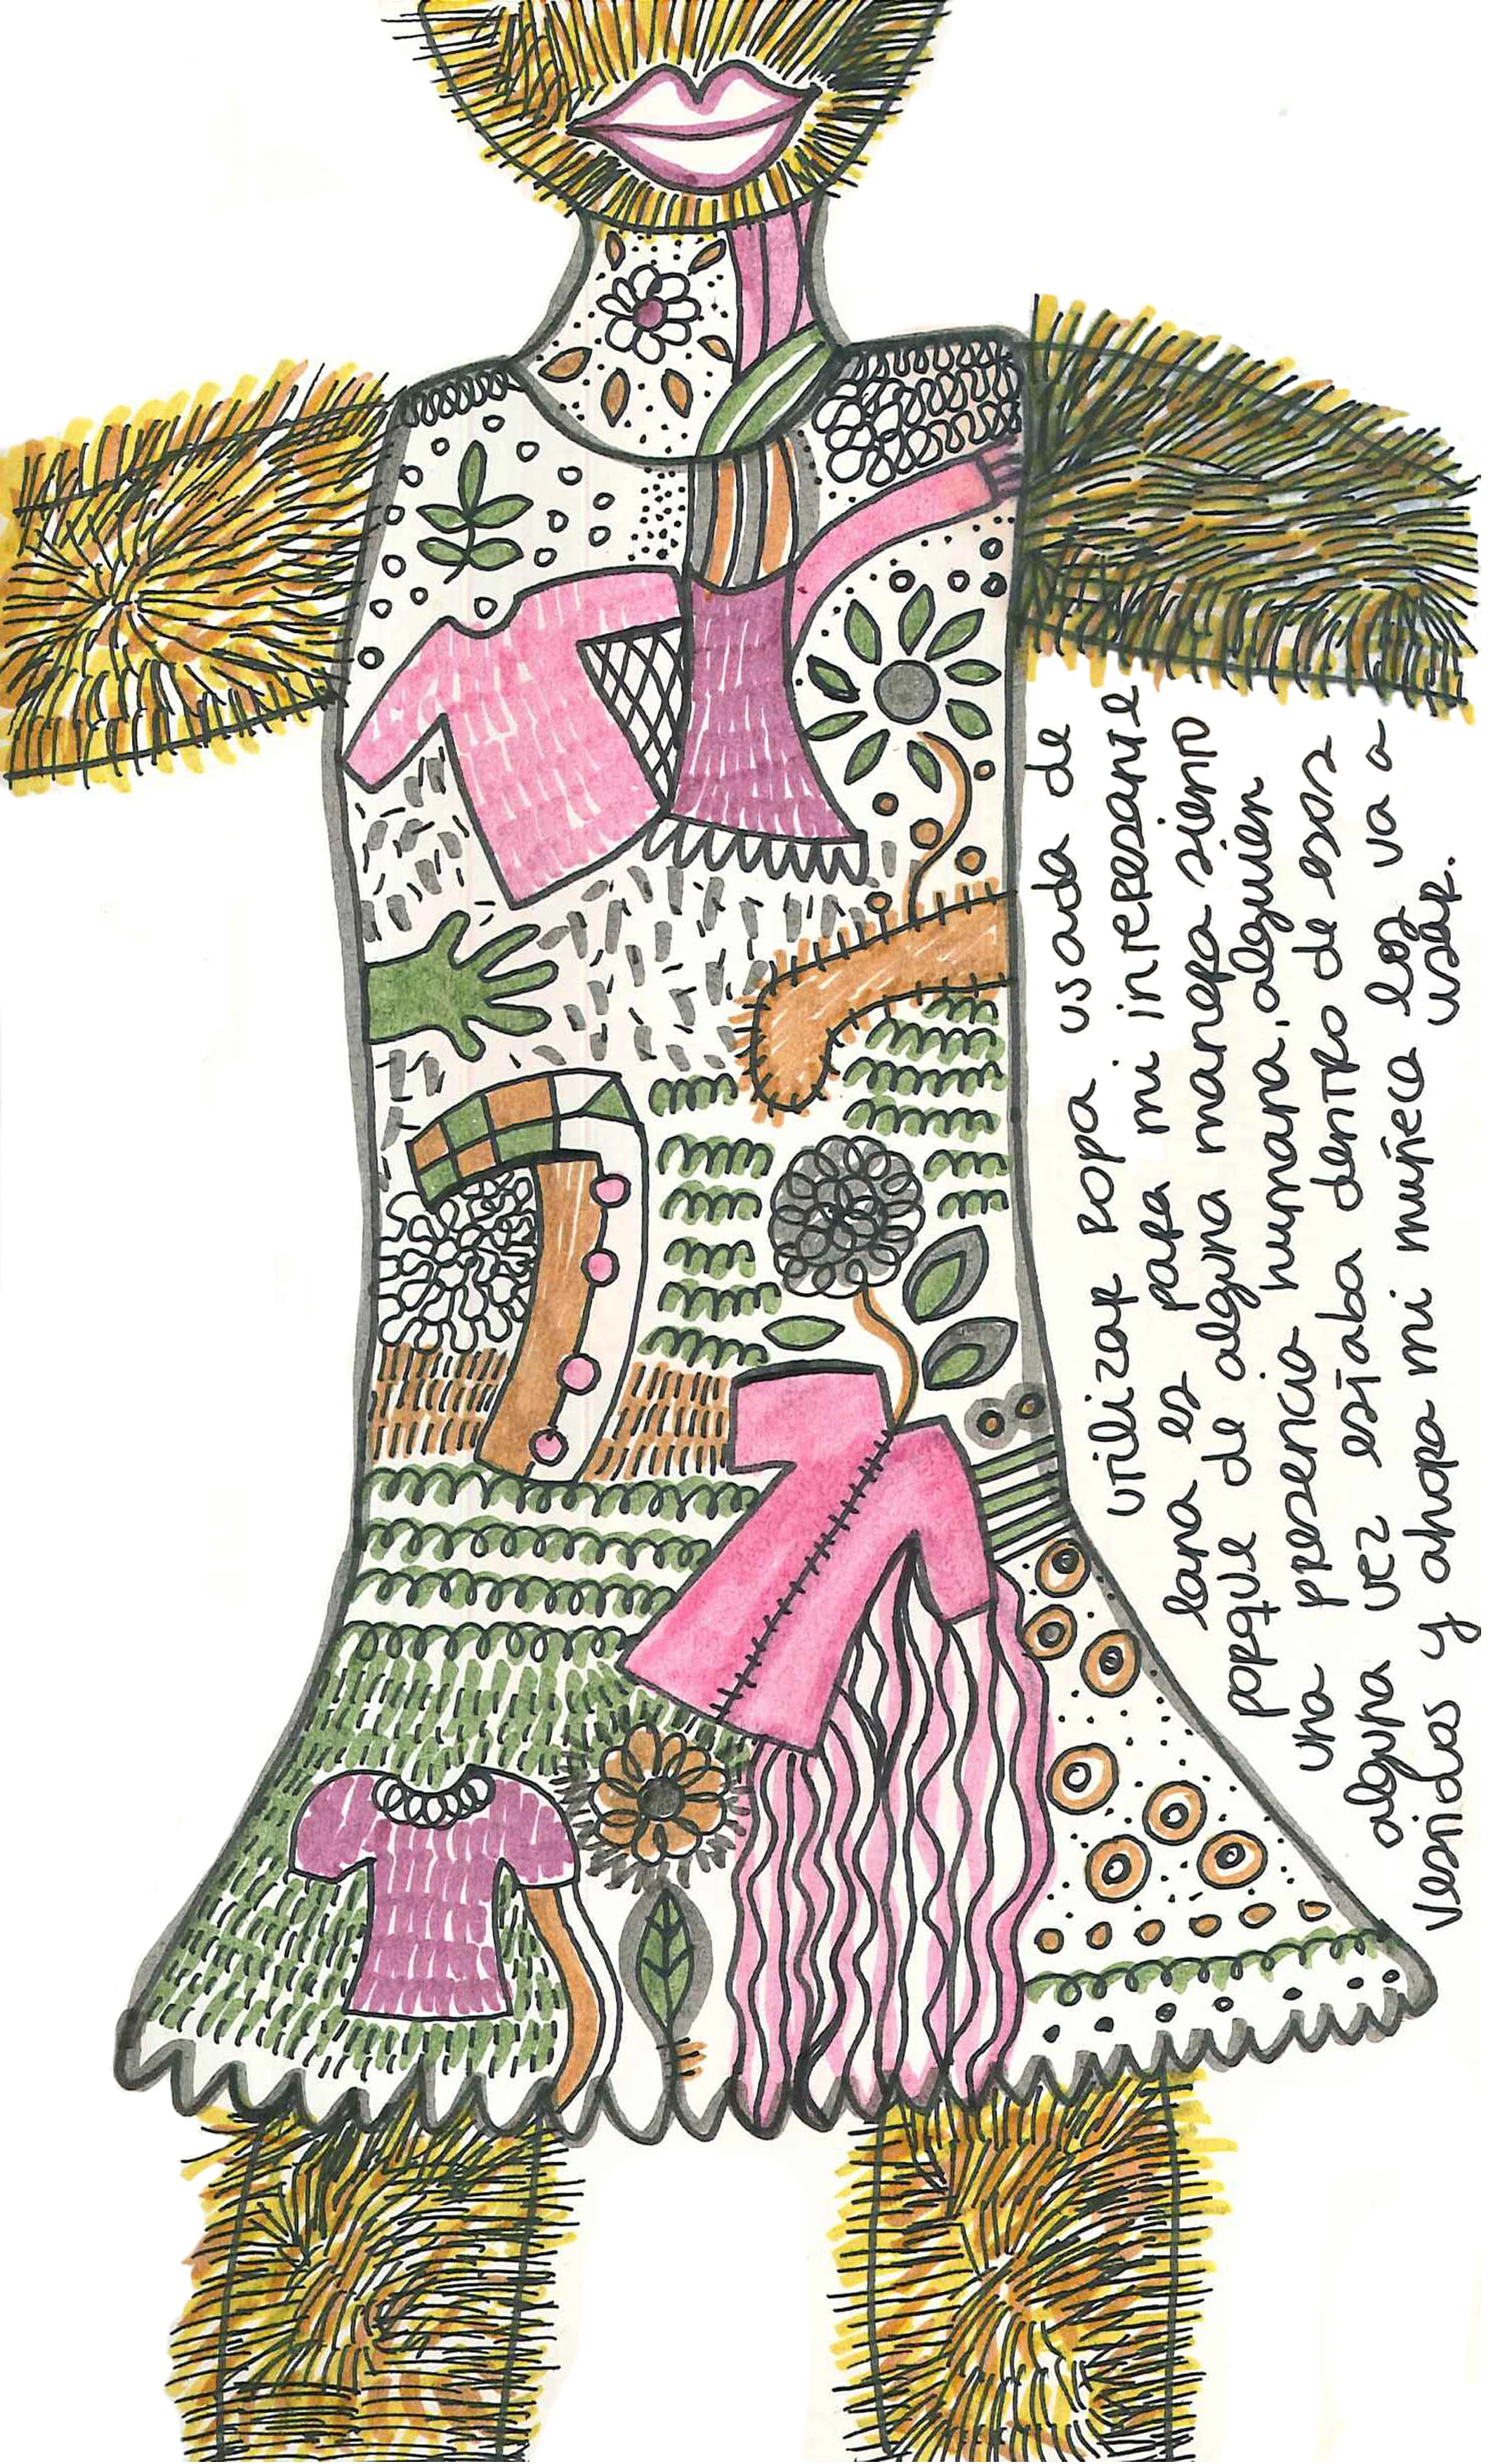 utilizar ropa usada de
lana es para mi interesante
porque de alguna manera siento
una presencia humana, alguien
alguna vez estaba dentro de esos
vestidos y ahora mi muñeca los va a
usar.